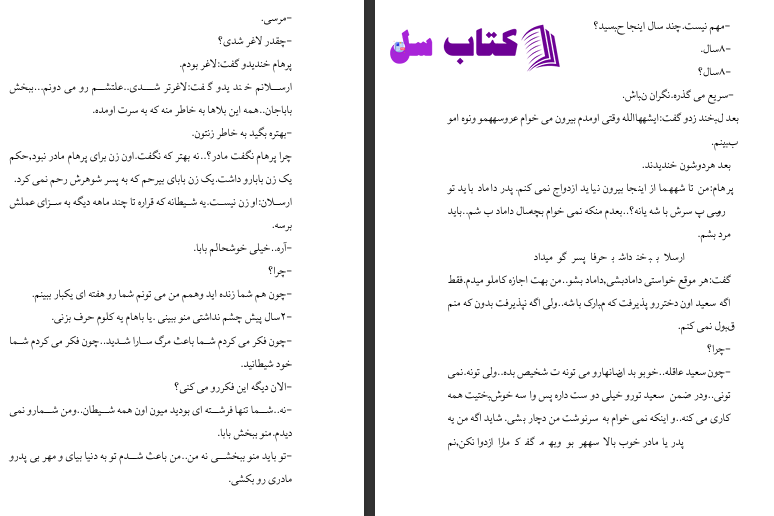 -مهم نیست.چند سال اینجا حبسید؟
کتاب سل
-۸سال.
-۸سال؟
-سریع می گذره.نگران نباش.
بعد لبخند زدو گفت:ایشهالله وقتی اومدم بیرون می خوام عروسهمو ونوه امو
ببینم.
بعد هردوشون خندیدند.
پرهام:من تا شهما از اینجا بیرون نیاید ازدواج نمی کنم. پدر داماد باید تو
سرش باشه یانه؟..بعدم منکه نمی خوام بچهسال داماد بشم..باید
مرد بشم.
گفت:هر موقع خواستی دامادبشی،داماد بشو..من بهت اجازه کاملو میدم.فقط
اگه سعید اون دختررو پذیرفت که مبارک باشه..ولی اگه نپذیرفت بدون که منم
قبول نمی کنم.
-چرا؟
-چون سعید عاقله..خوبو بد رو می تونه تشخیص بده..ولی تونه.نمی
تونی..ودر ضمن سعید تورو خیلی دوست داره پس واسه خوشبختیت همه
کاری می کنه..و اینکه نمی خوام به سرنوشت من دچار بشی. شاید اگه من یه
پدر یا مادر خوب بالا
-مرسی.
-چقدر لاغر شدی؟
پرهام خندیدو گفت:لاغر بودم.
ارسلانم خندیدو گفت:لاغرتر شدی..علتشم رو می دونم...ببخش
باباجان..همه این بلاها به خاطر منه که به سرت اومده.
-بهتره بگید به خاطر زنتون.
چرا پرهام نگفت مادر؟..نه بهتر که نگفت.اون زن برای پرهام مادر نبود،حکم
یک زن بابارو داشت.یک زن بابای بیرحم که به پسر شوهرش رحم نمی کرد.
ارسلان:او زن نیست.یه شیطانه که قراره تا چند ماهه دیگه به سزای عملش
برسه.
-آره..خیلی خوشحالم بابا.
-چرا؟
-چون هم شما زنده اید وهمم من می تونم شما رو هفته ای یکبار ببینم.
-۲سال پیش چشم نداشتی منو ببینی .یا باهام یه کلوم حرف بزنی.
-چون فکر می کردم شما باعث مرگ سارا شدید..چون فکر می کردم شما
خود شیطانید.
-الان دیگه این فکررو می کنی؟
-نه..شما تنها فرشته ای بودید میون اون همه شیطان..ومن شمارو نمی
دیدم.منو ببخش بابا.
-تو باید منو ببخشی نه من..من باعث شدم تو به دنیا بیای و مهر بی پدرو
مادری رو بکشی.